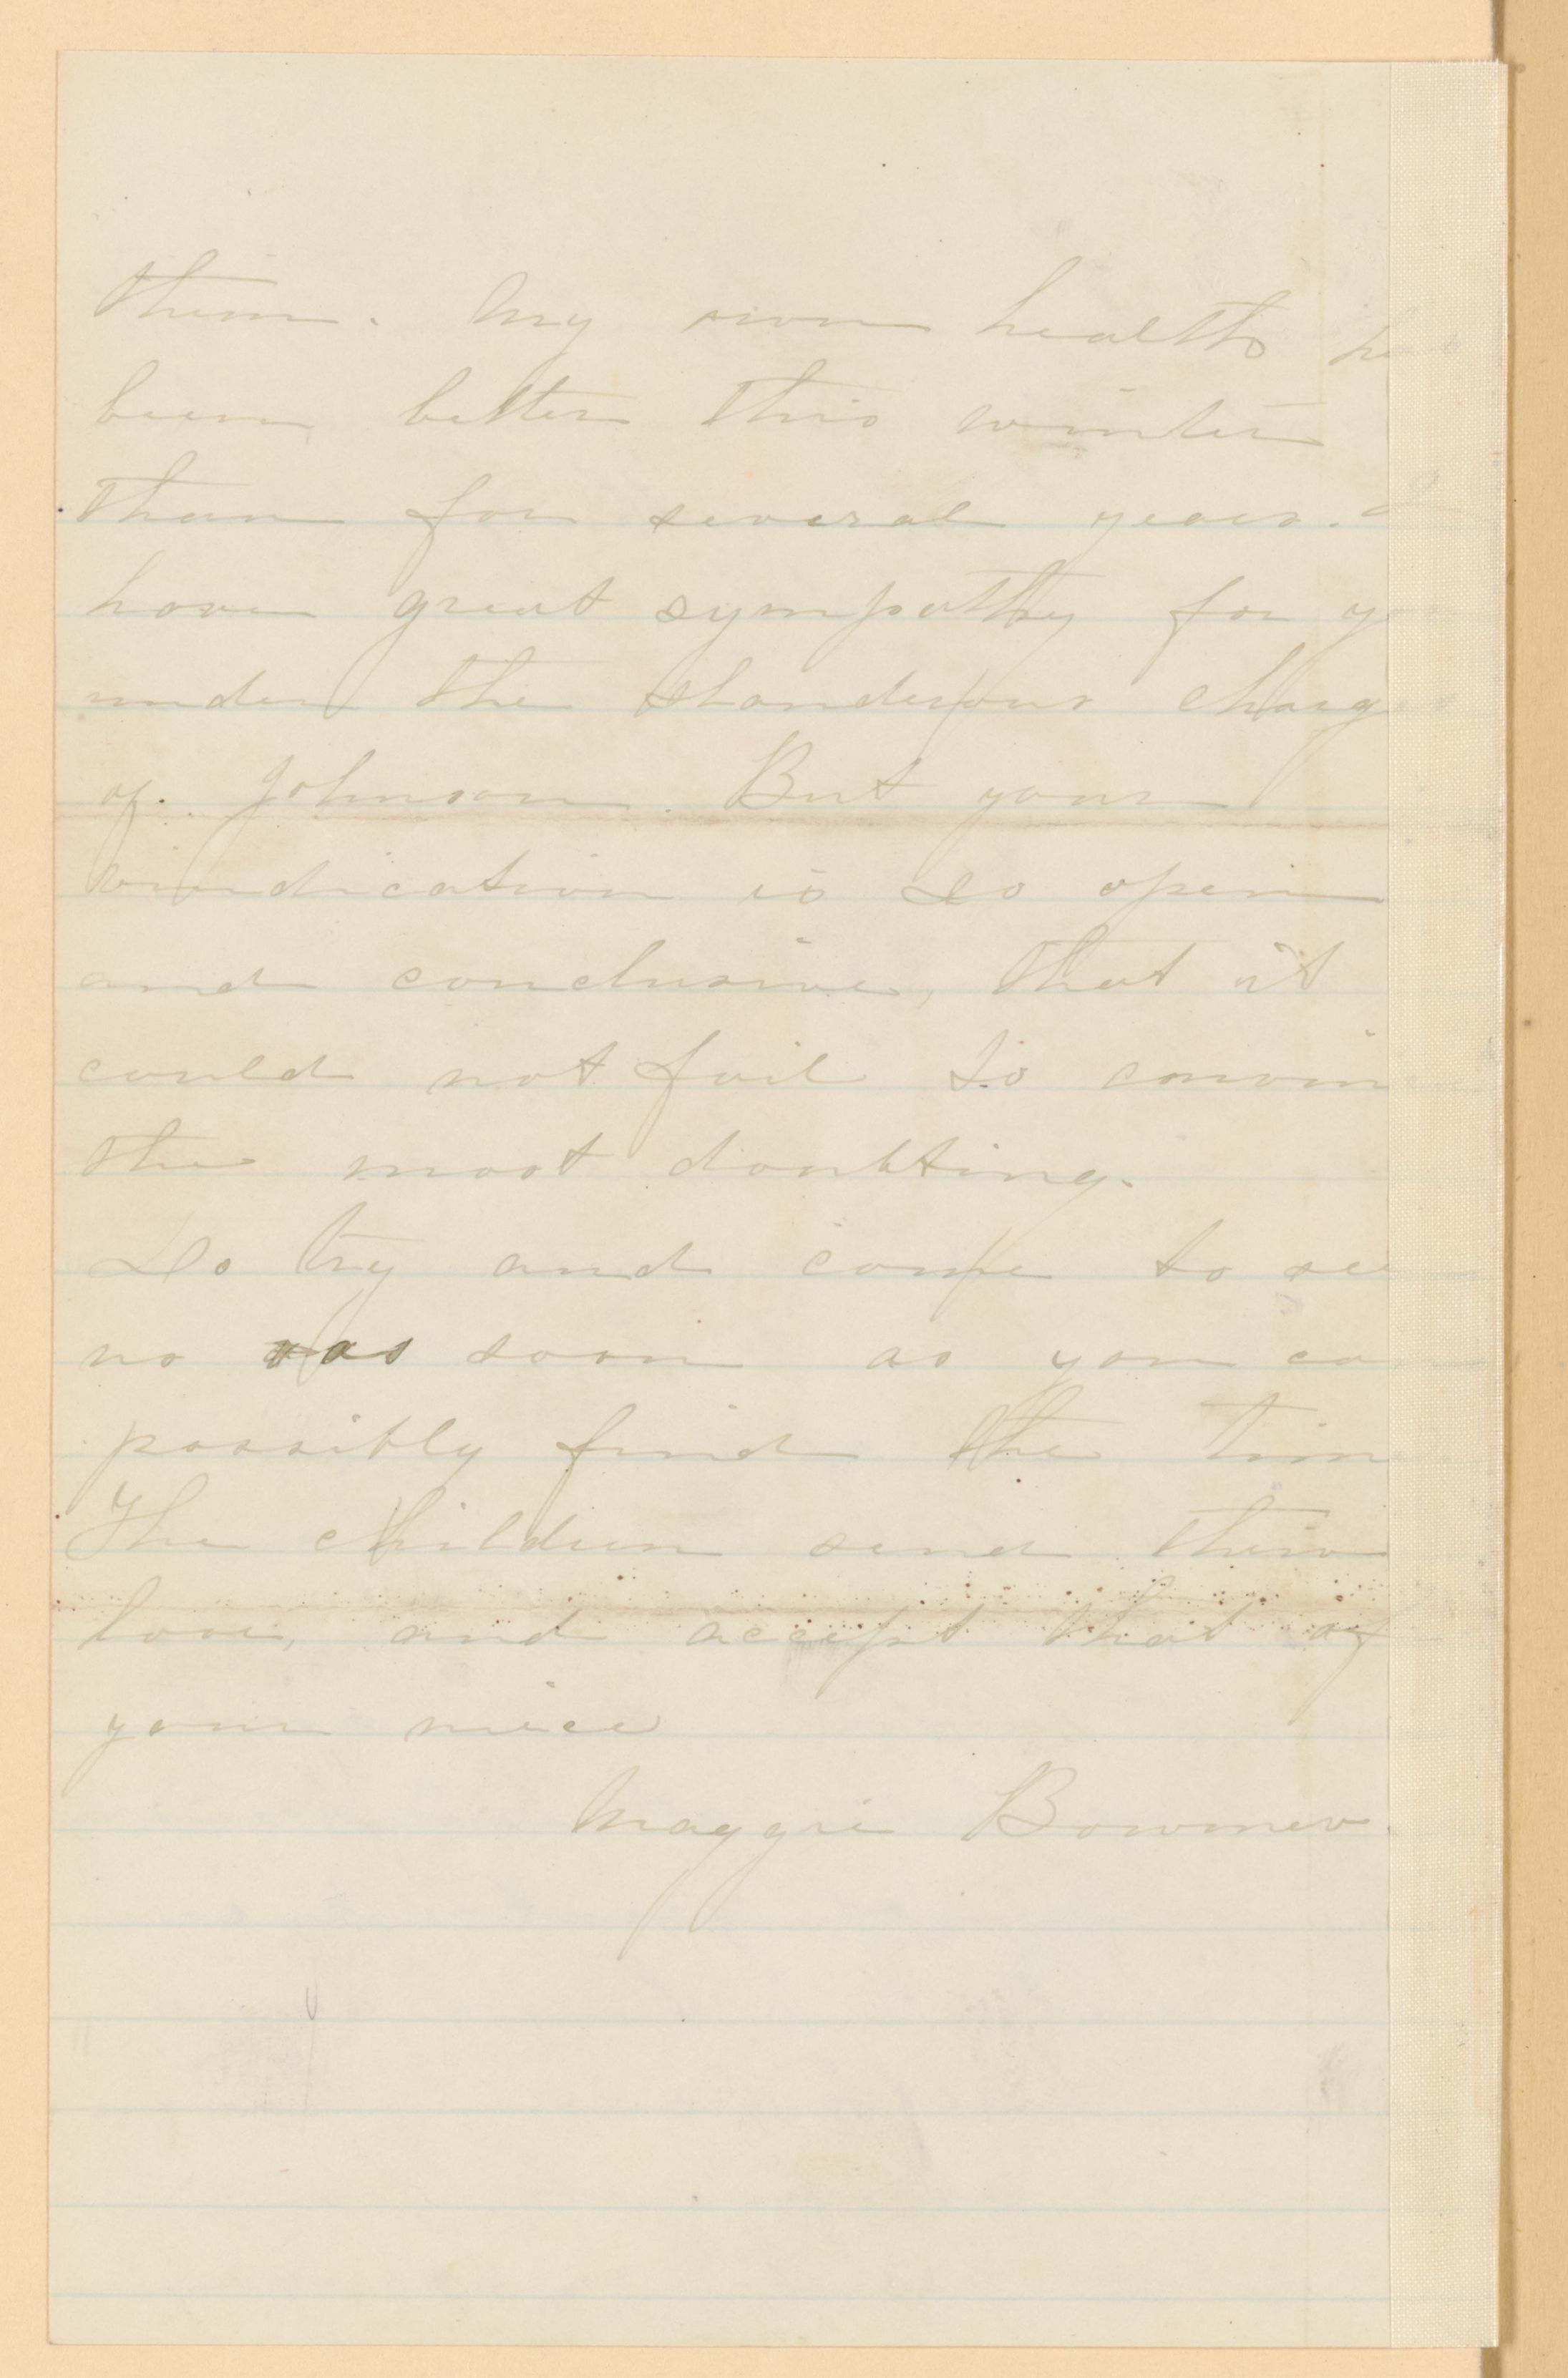 them. My own health ha
been better this winter
than for several years. I
have great sympathy for yo
under the slanderous charg
of Johnson. But your
vindication is so open
and conclusive, that it
could not fail to convin
the most doubting.
Do try and come to see
us as soon as you ca
possibly find the tim
The children send their
love, and accept that of
your niece
Maggie Bowmer.